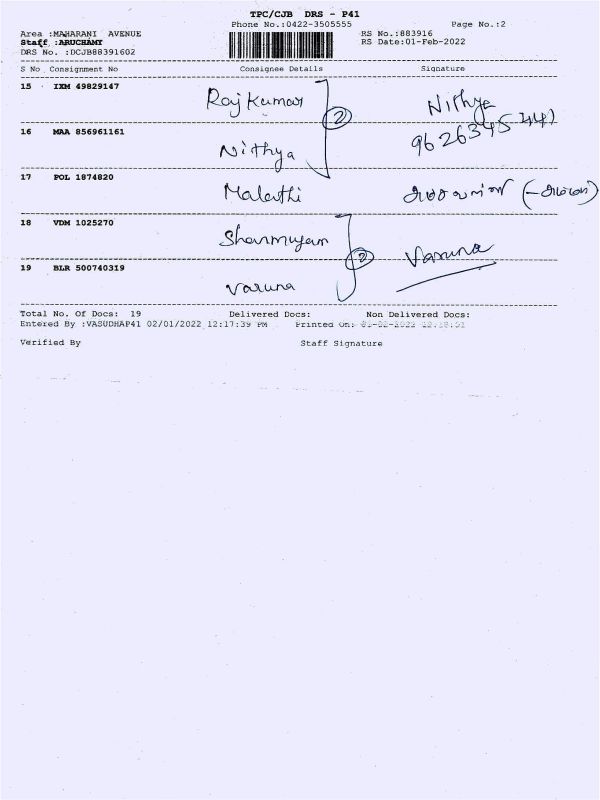 TPC/CJB DRS - P41
Phone No.:0422-3505555 Page No.:2
Area :MAHARANI AVENUE RS No.:883916
Staff :ARUCHAMY RS Date:01-Feb-2022
DRS No. :DCJB88391602
S No Consignment No Consignee Details Signature
15 IXM 49829147 Raj Kumar Nithya
16 MAA 856961161 Nithya 2
17 POL 1874820 Malathi
18 VDM 1025270 Shanmugam
19 BLR 500740319 Varuna 2 Varuna
Total No. Of Docs: 19 Delivered Docs: Non Delivered Docs:
Entered By :VASUDHAP41 02/01/2022 12:17:39 PM Printed On: 01-02-2022
Verified By Staff Signature